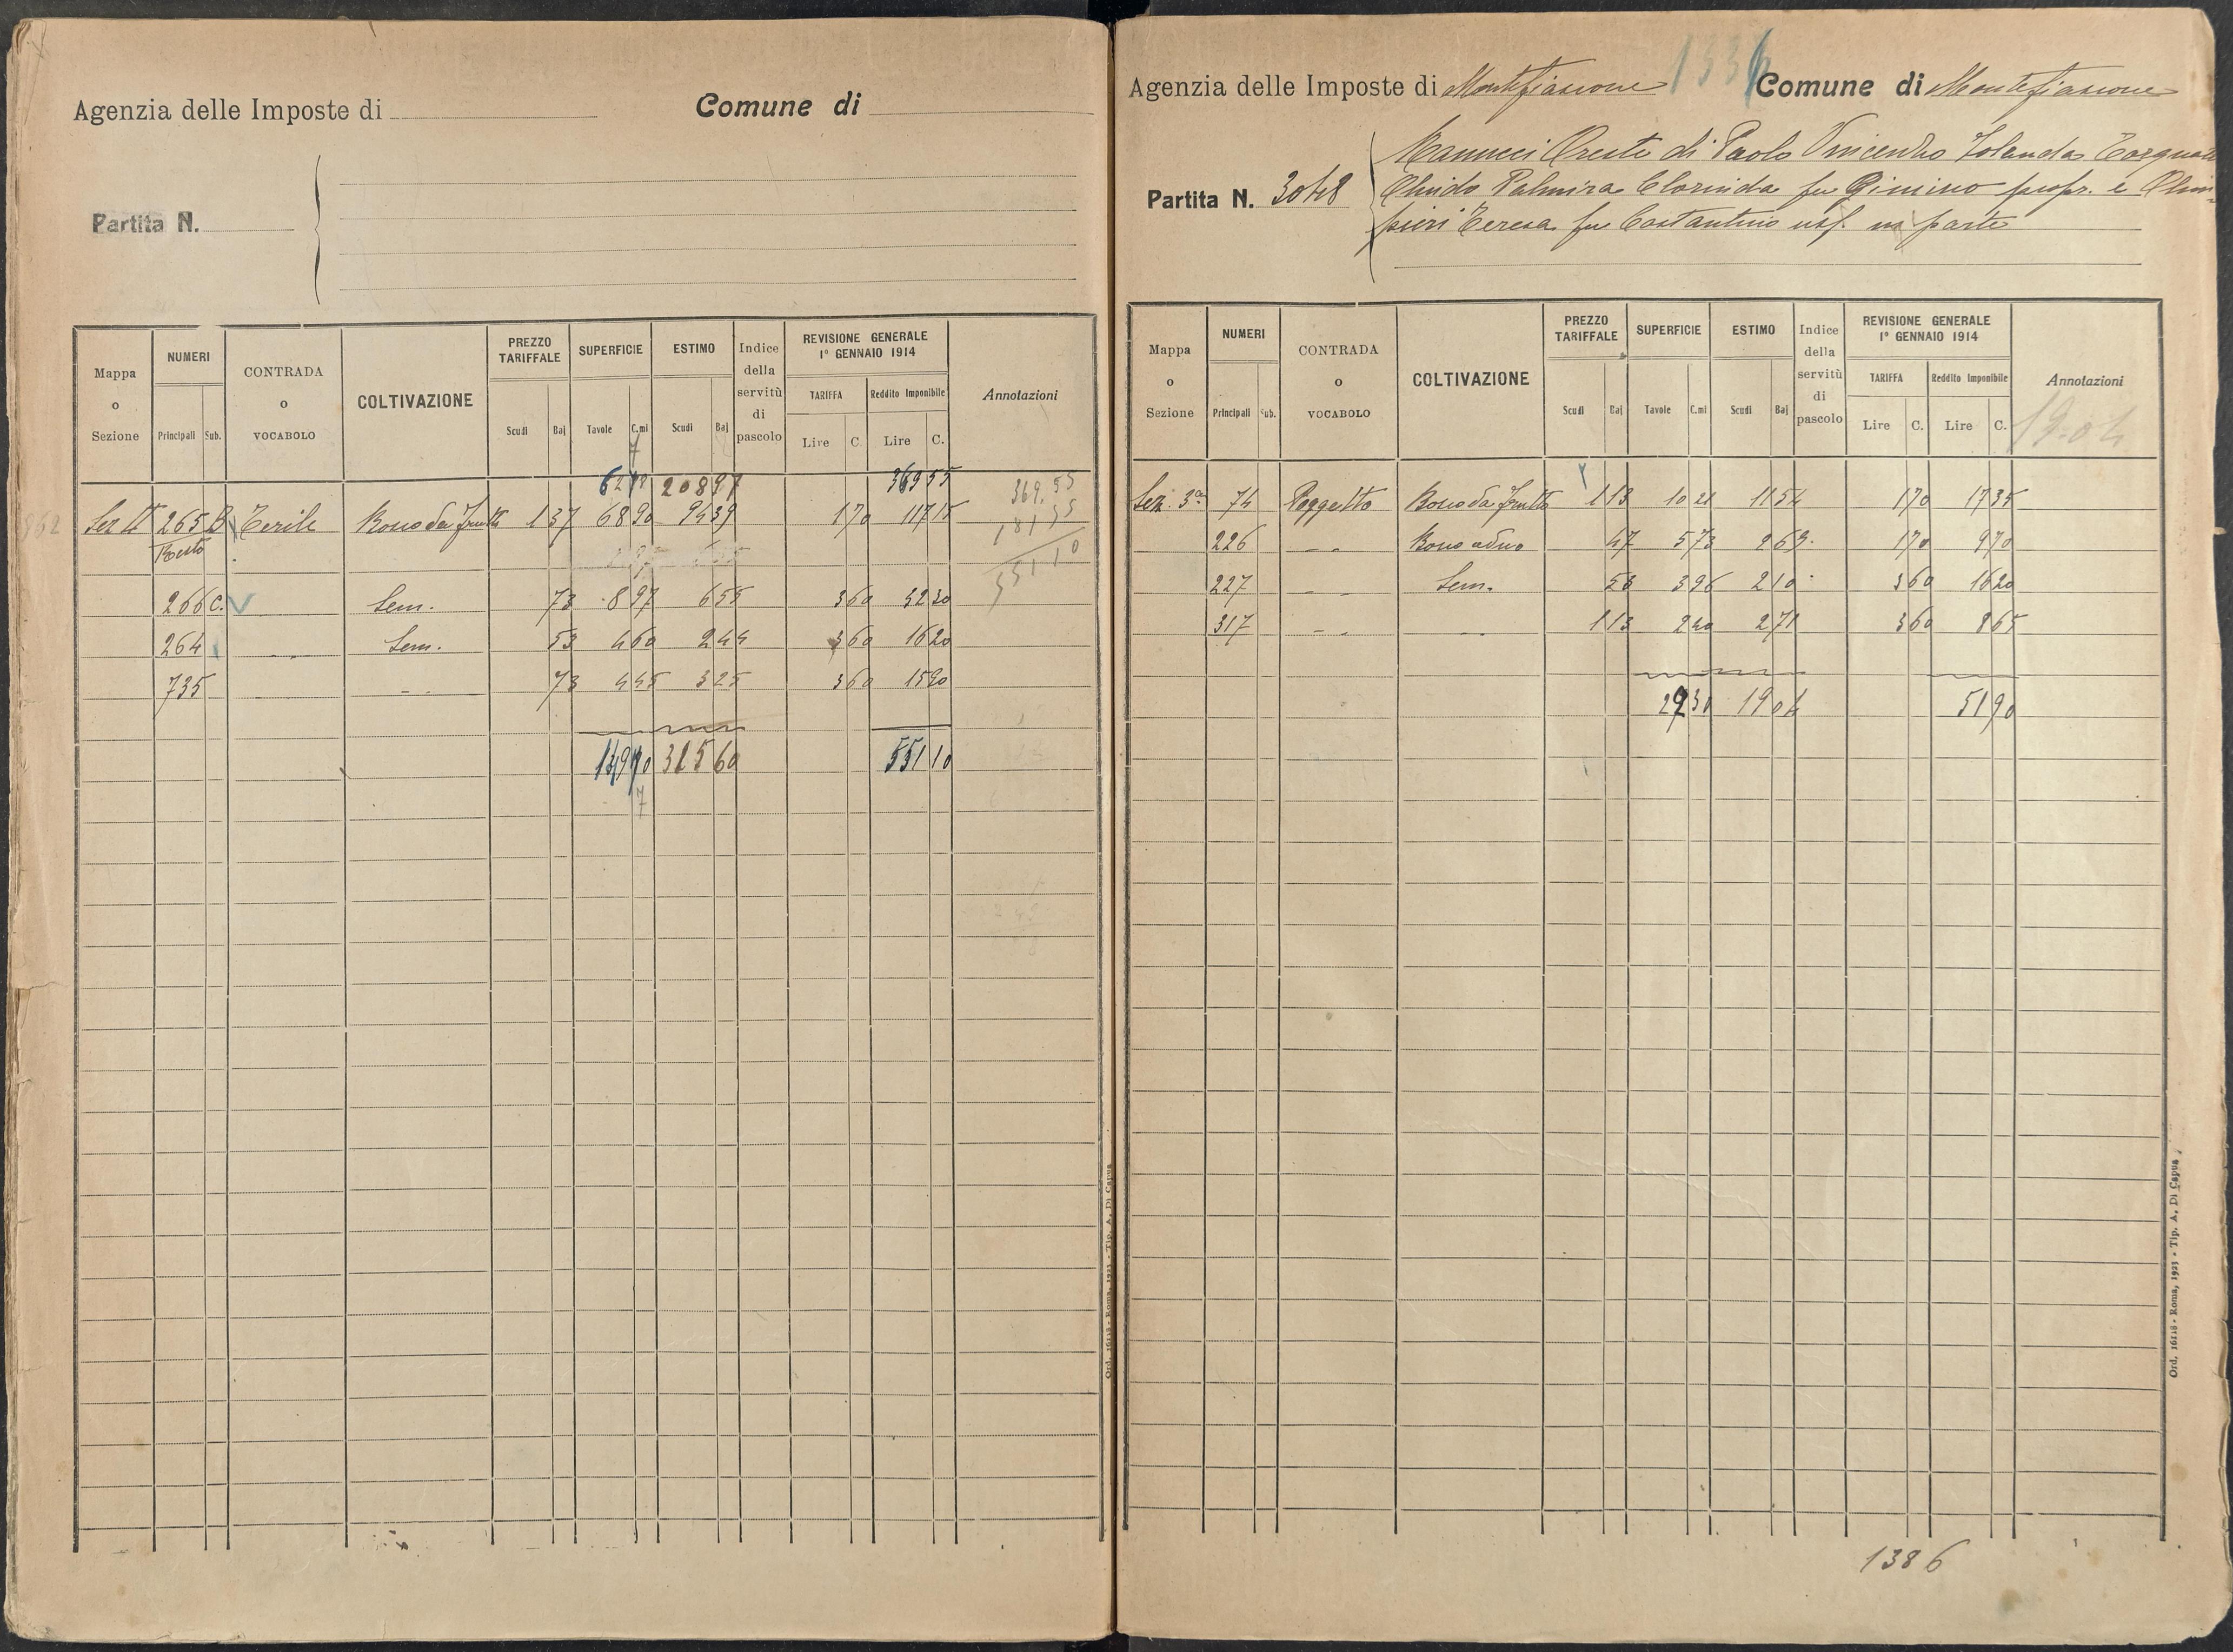 Agenzia delle Imposte di
Comune di
Partita N.
Mappa o Sezione
NUMERI
Principali Sub.
CONTRADA o VOCABOLO
COLTIVAZIONE
PREZZO TARIFFALE
Scudi Baj
SUPERFICIE
Tavole C.mi
ESTIMO
Scudi Baj
Indice della servitù di pascolo
REVISIONE GENERALE 1° GENNAIO 1914
TARIFFA
Lire C.
Reddito Imponibile
Lire C.
Annotazioni
7
208 97 369 55 369.55
265 B Bosco da frutto 1 37 68 90 94 39 1 70 117 15 181 55
Resto 551 10
266 C. Sem. 73 8 97 6 55 3 60 32 30
264 Sem. 53 4 60 2 44 3 60 16 20
735 " 73 4 45 3 25 3 60 15 90
315 60 551 10
7
Ord. 16118 - Roma, 1923 - Tip. A. Di Capua
Agenzia delle Imposte di Montefiascone Comune di Montefiascone
Partita N. 3048
Mannucci Oreste di Paolo Vincenzo Iolanda
Palmira Clorinda fu propr. e Olim-
pieri Teresa fu Costantino usf. in parte
Mappa o Sezione
NUMERI
Principali Sub.
CONTRADA o VOCABOLO
COLTIVAZIONE
PREZZO TARIFFALE
Scudi Baj
SUPERFICIE
Tavole C.mi
ESTIMO
Scudi Baj
Indice della servitù di pascolo
REVISIONE GENERALE 1° GENNAIO 1914
TARIFFA
Lire C.
Reddito Imponibile
Lire C.
Annotazioni
19.04
Sez. 3a 74 Poggetto Bosco da frutto 1 13 10 21 11 54 1 70 17 35
226 " " Bosco 47 5 73 2 69 1 70 9 70
227 " " Sem. 53 3 96 2 10 3 60 16 20
317 " " " 1 13 2 40 2 71 3 60 8 65
22 30 19 04 51 90
Ord. 16118 - Roma, 1923 - Tip. A. Di Capua
1386